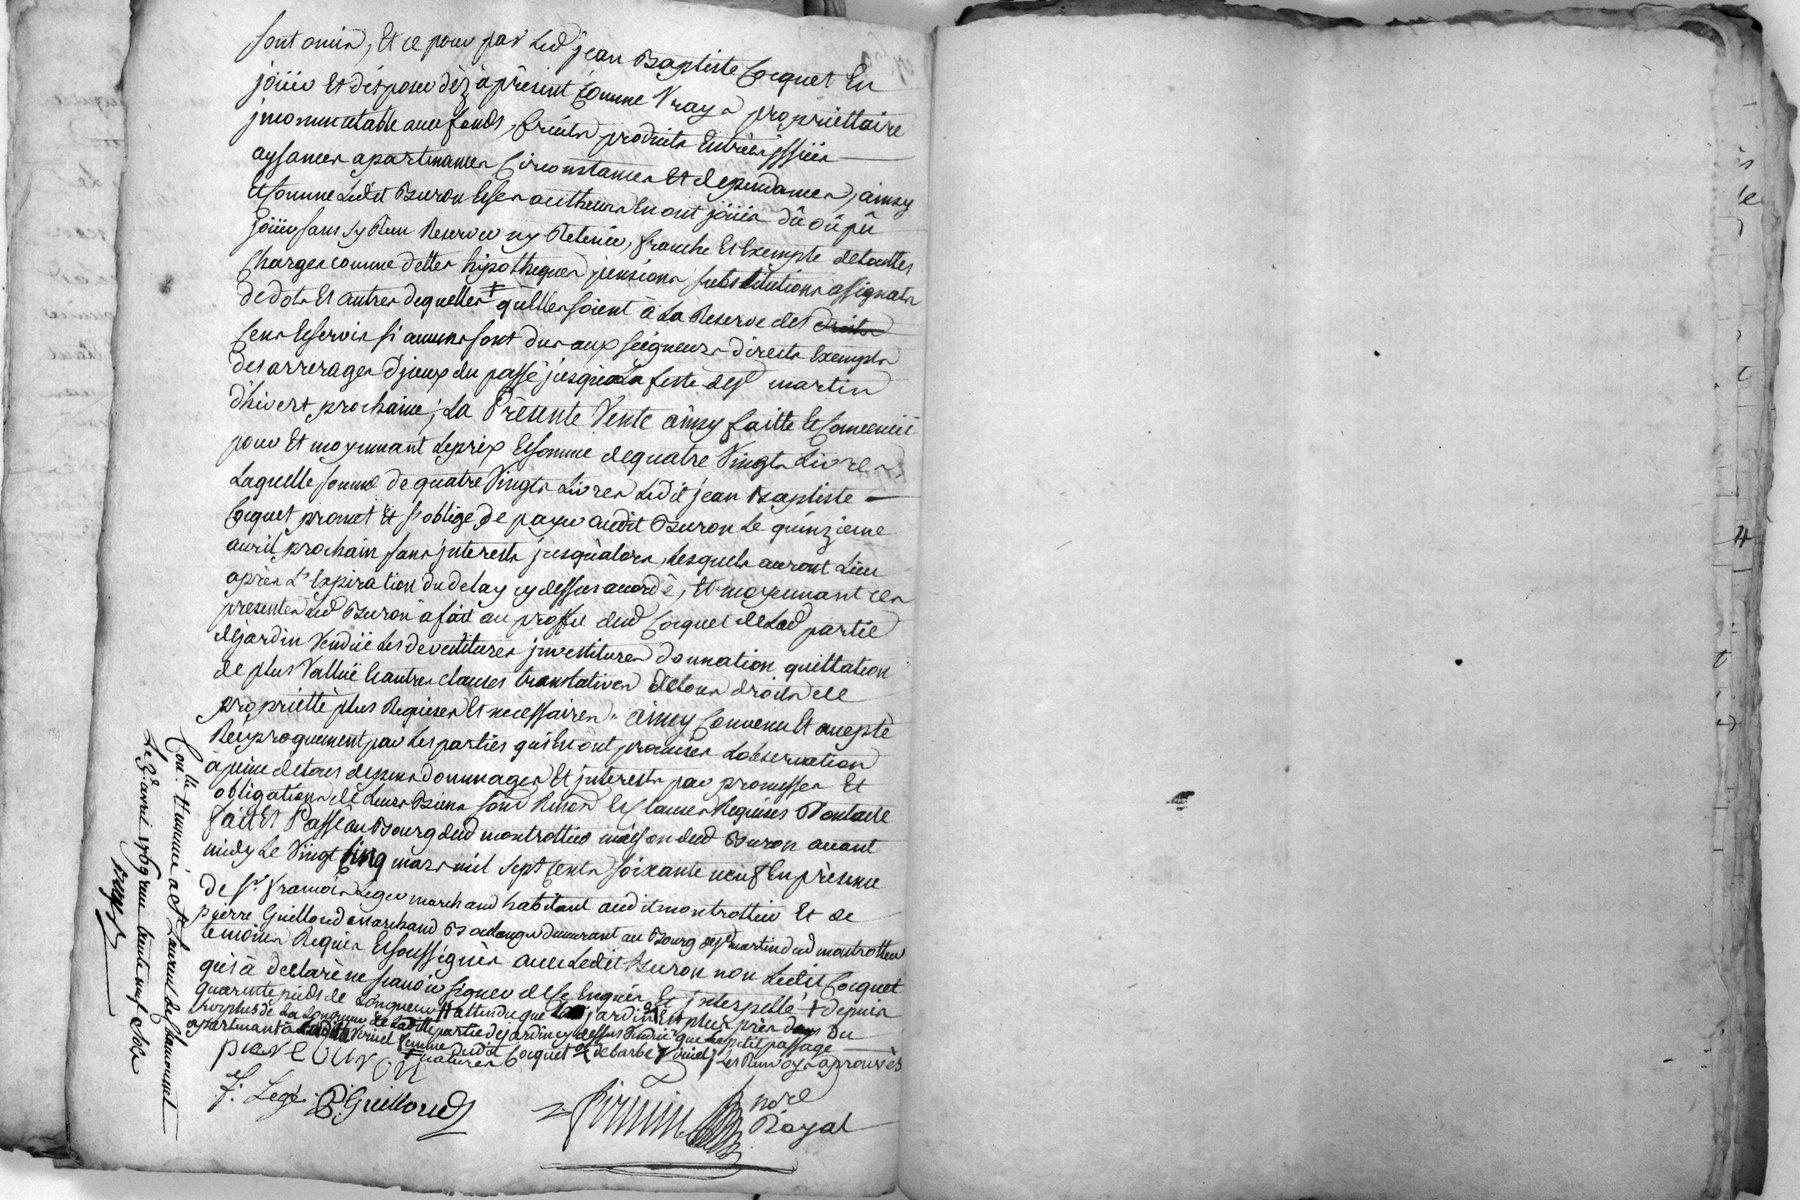 sont omis, Et ce pour par Led jean Baptiste Coquet En
joüir Et disposer déz àprésent Comme Vrays propriettaire
jncommutable aux fonds, fruits produits Entrées jssües
aysances apartenances Circonstances Et dependances, ainsy
Et Comme Ledit Buron Et ses autheurs En ont joüis dû où pû
joüir sans sy Rien Reserver ny Retenir, franche Et Exempte detouttes
Charges comme dettes hipotheques pensions substitutions assignats
de dots Et autres dequelles ‡ quelles soient à La Reserve des droits
Cens Et servis si aucuns sont dus aux seigneurs directs Exempts
des arrerages d'jceux du passé jusqu'a La feste de St martin
d'hivert prochaine; La Présente Vente ainsy faitte Et Convenüe
pour Et moyennant Le prix Et somme de quatre Vingts Livres
Laquelle somme de quatre Vingts Livres Ledit jean Baptiste
Coquet promet Et s'oblige de payer audit Buron Le quinzieme
avril prochain sans jnterests jusqu'alors, Lesquels auront Lieu
après L'Expiration du delay cy dessus accordé, Et moyennant ces
presentes Led Buron à fait au proffit dud Coquet de Lad partie
de jardin Vendüe Les devestitures jnvestitures donnation quittation
de plus Vallüe Et autres clauses translatives de tous droits de
propriétté plus Requises Et necessaires. ainsy Convenu Et accepté
Réciproquement par Les parties qui En ont promises Lobservation
à peine de tous depens dommages Et jnterests par promesses Et
obligations de Leurs Biens sous Renon Et Clauses Requises Dontacte
fait Et Passé au Bourg dud montrottier maison dud Buron avant
midy Le Vingt Cinq mars mil sept Cents soixante neuf En présence
de Sr francois Leger marchand habitant audit montrottier Et de
pierre Guilloud marchand Boulanger demeurant au Bourg de St martin dud montrottier
temoins Requis Et soussignés avec Ledit Buron non Ledit Coquet
qui à déclaré ne scavoir signer de ce Enquis Et jnterpellé + depuis
quarante pieds de Longueur # attendu que Le jardin Est plus près dans du
surplus de La Longueur de Ladite partie de jardin cy dessus Vendüe que Le petit passage
apartenant a Verniel femme dudit Coquet de barbe Verniel Les Renvoys aprouvés
‡ natures
pierre Buron
f. Legé P Guilloud
Firmin
nore
Royal
Conlle Et jnsinué a St Laurent de Chamousset
Le 9e avril 1769 reçu trente neuf sols